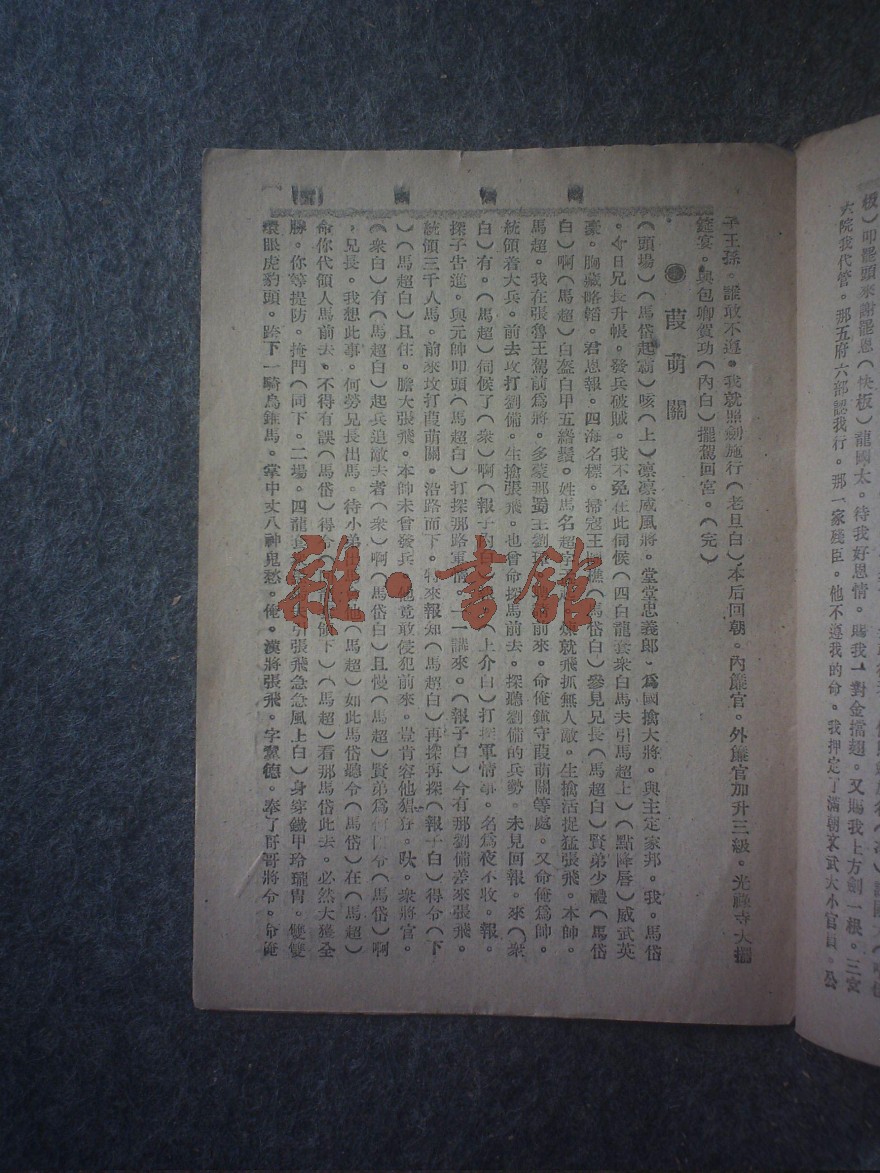 板）叩罷頭來謝罷恩（快板）龍國太。待我好恩情。賜我一對金擋翅。又賜我上方劍一根。三宮
六院我代管。那五府六部認我行。那一家殘臣。他不遵我的命。我押定了滿朝文武大小官員。公
子王孫。誰敢不遵。我就照劍施行（老旦白）本后回朝。內簾官。外簾官加升三級。光祿寺大擺
筵宴。與包卿賀功（內白）擺駕回宮。（完）
葭萌關
（頭場）（馬岱起霸）咳（上）凛凛威風將。堂堂忠義郎。爲國擒大將。與主定家邦。我。馬岱
。今日兄長升帳。發兵破賊。我不免在此伺候（四白龍套衆白馬夫引馬超上）（點降唇）威武英
豪。胸藏略韜。君恩報。四海名標。掃寇王（馬岱白）參見兄長（馬超白）賢弟少禮（馬岱
白）啊（馬超白）白盔白甲五綹鬚。姓馬名超字 就飛抓無人敵。生擒活捉猛張飛。本帥。
馬超。我在張魯王駕前爲將。多蒙那蜀主劉 前來。命俺鎮守葭萌關等處。又命俺爲帥。
統領着大兵。前去攻打劉備。生擒張飛。也曾命探馬前去。探聽劉備的兵勢。未見回報。來（衆
白）有。（馬超）伺候了（衆）啊（報子內白 （上介白）打探軍情事。名爲夜不收。報。
探子告進。與元帥叩頭（馬超白）打探那路軍情。一一講來。（報子白）今有那劉備差來張飛。
統領三千人馬。前來攻打葭萌關。沿路而下。特來報知（馬超白）再探再探（報子白）得令（下
）（馬超白）且住。膽大張飛。本帥未曾發兵 竟敢侵犯前來。豈肯容他猖狂。呔。衆將官。
（衆白）有（馬超白）起兵追敵去者（衆）啊（馬岱白）且慢（馬超）賢弟爲何 令（馬岱）啊
。兄長。我想此事。何勞兄長出馬。待小弟 （馬超）如此馬岱聽令（馬岱）在（馬超）
命你代領人馬前去。不得有誤（馬岱）得令 下）（馬超）看那馬岱此去。必然大獲全
勝。你等提防。掩門（同下。二場。四龍套 引張飛急急風上白）身穿鐵甲玲瓏冑。雙雙
環眼虎豹頭。跨下一騎烏錐馬。掌中丈八神鬼愁。俺。漢將張飛。字翼德。奉了哥哥將令。命俺
雜·書館